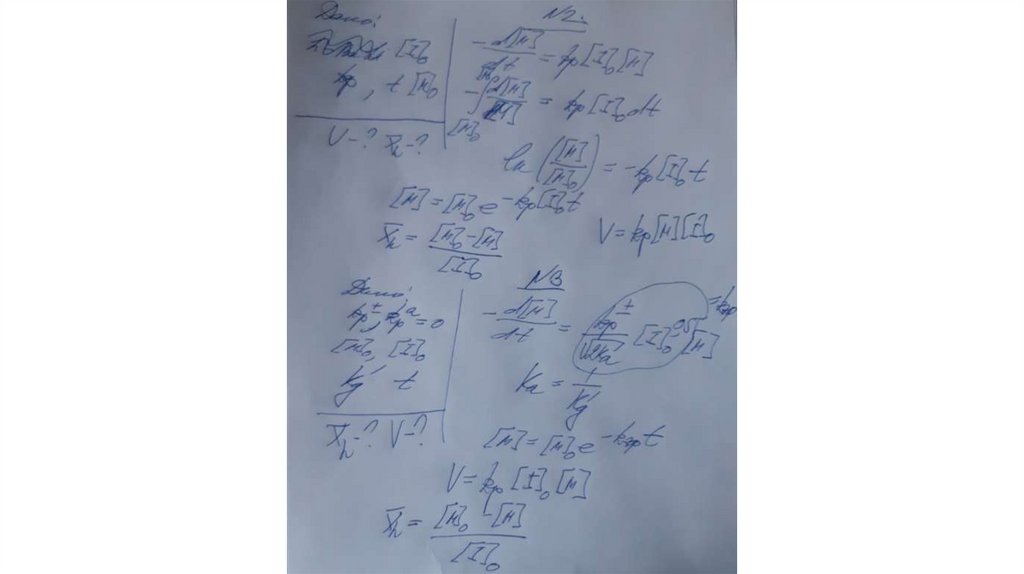 Дано:
[I]₀
kp, t [M]₀
V-? X̄n-?
N2.
-d[M]/dt = kp[I]₀[M]
-∫d[M]/[M] = kp[I]₀dt
[M]₀
ln([M]/[M]₀) = -kp[I]₀t
[M] = [M]₀e^-kp[I]₀t
V = kp[M][I]₀
X̄n = [M]₀-[M]/[I]₀
N3
Дано:
kp±, kp'a = 0
[M]₀, [I]₀
Kg' t
X̄n-? V-?
-d[M]/dt = kp±/√2Ka [I]₀^0,5 [M]
Ka = 1/Kg'
[M] = [M]₀e^-kэфt
V = kp[I]₀[M]
X̄n = [M]₀-[M]/[I]₀